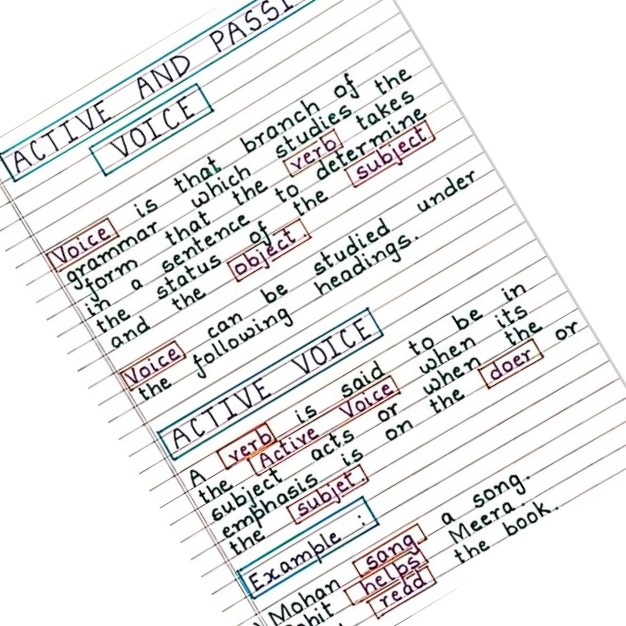 ACTIVE AND PASSI
VOICE
Voice is that branch of
grammar which studies the
form that the verb takes
in a sentence to determine
the status of the subject
and the object.
Voice can be studied under
the following headings.
ACTIVE VOICE
A verb is said to be in
the Active Voice when its
subject acts or when the
emphasis is on the doer or
the subjet.
Example :
Mohan sang a song.
helps Meera.
read the book.